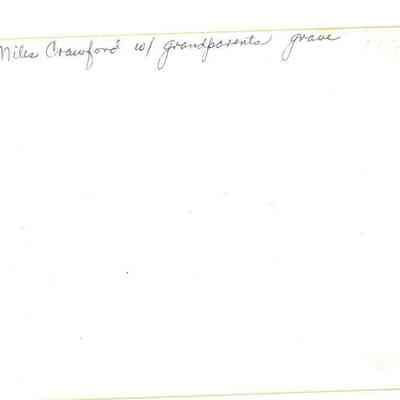 Niles Crawford w/ grandparents grave